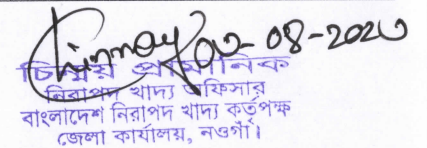 Chinmoy
08-2020
চিন্ময় প্রামানিক
নিরাপদ খাদ্য অফিসার
বাংলাদেশ নিরাপদ খাদ্য কর্তৃপক্ষ
জেলা কার্যালয়, নওগাঁ।